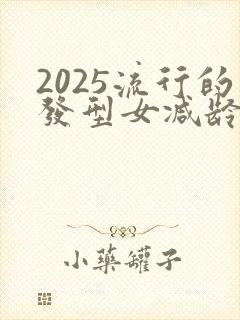 2025流行的
發型女減齡
小藥罐子